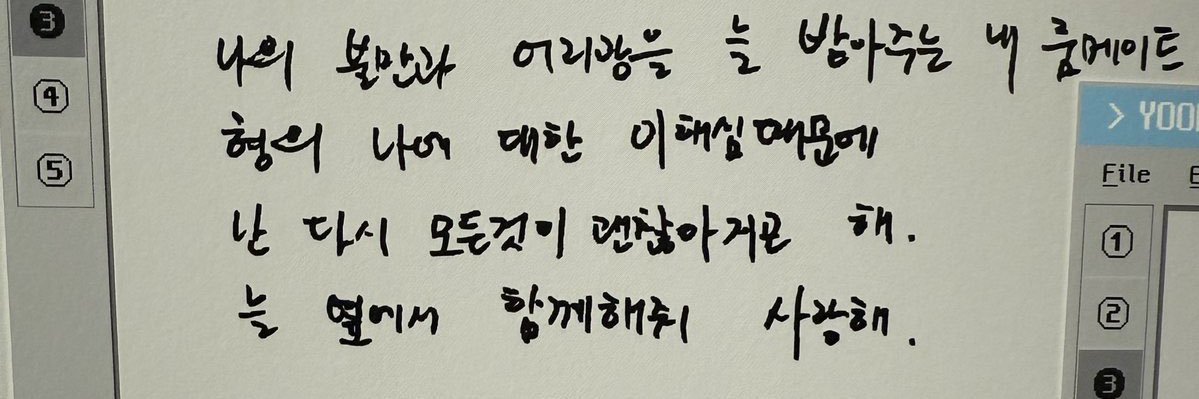 3
4
5
나의 불만과 어리광을 늘 받아주는 내 룸메이트
형의 나에 대한 이해심때문에
난 다시 모든것이 괜찮아지곤 해.
늘 옆에서 함께해줘 사랑해.
> YOO
File E
1
2
3